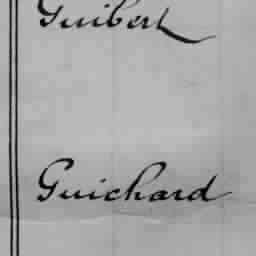 Guibert
Guichard